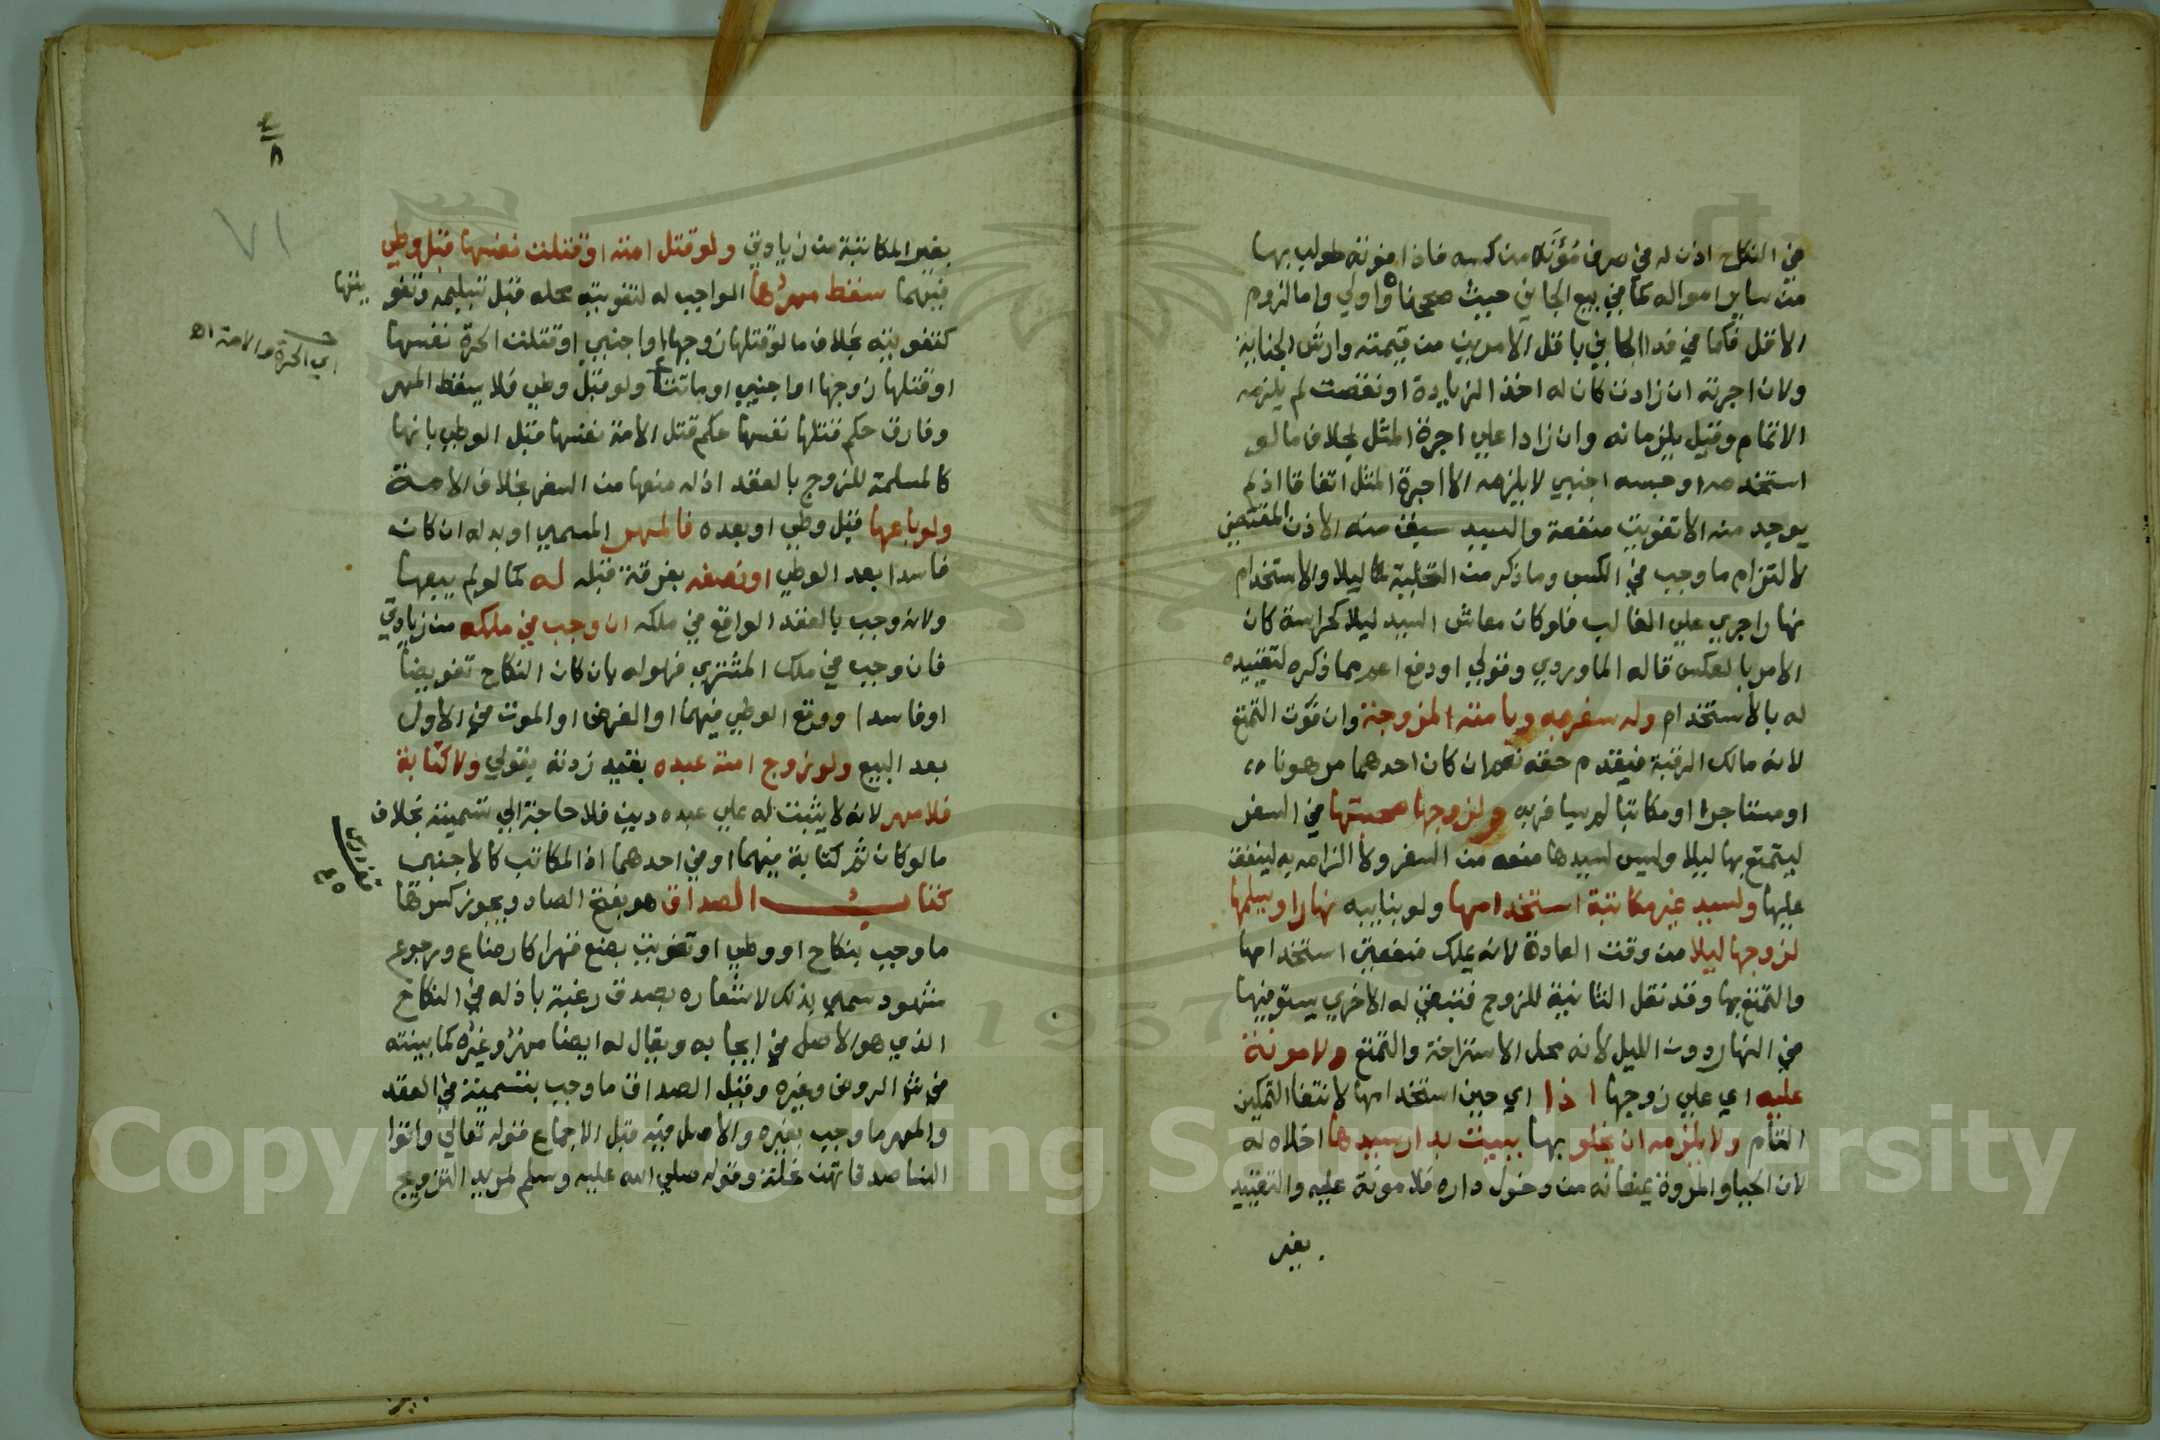 في النكاح اذن له في صرف مؤنه من كسبه فاذا فوته طولب بها
من ساير امواله كما في بيع الجاني حيث صححناه واولي واما لزوم
الاقل فكما في فدا الجاني باقل الامرين من قيمته وارش الجناية
ولان اجرته ان زادت كان له اخذ الزيادة او نقصت لم يلزمه
الاتمام وقيل يلزمانه وان زادا علي اجرة المثل بخلاف ما لو
استخدمه او حبسه اجنبي لا يلزمه الا اجرة المثل اتفاقا اذ لم
يوجد منه الا تفويت منفعة والسيد سبق منه الاذن المقتضي
لالتزام ما وجب في الكسب وما ذكر من التخلية ليلا والاستخدام
نهارا جري علي الغالب فلو كان معاش السيد ليلا كحراسة كان
الامر بالعكس قاله الماوردي وقولي او دفع اعم مما ذكره لتقييده
له بالاستخدام وله سفر به وبامته المزوجة وان فوت التمتع
لانه مالك الرقبة فيقدم حقه نعم ان كان احدهما مرهونا
او مستاجرا او مكاتبا لم يسافر به ولزوجها صحبتها في السفر
ليتمتع بها ليلا وليس لسيدها منعه من السفر ولا الزامه به لينفق
عليها ولسيد غير مكاتبة استخدامها ولو بنايبه نهارا ويسلمها
لزوجها ليلا من وقت العادة لانه يملك منفعتي استخدامها
والتمتع بها وقد نقل الثانية للزوج فتبقي له الاخري يستوفيها
في النهار دون الليل لانه محل الاستراحة والتمتع ولا مونة
عليه اي علي زوجها اذا اي حين استخدامها لانتفا التمكين
التام ولا يلزمه ان يخلو بها ببيت بدار سيدها اخلاه له
لان الحيا والمروة يمنعانه من دخول داره فلا مونة عليه والتقييد
بغير
٧١
بغير المكاتبة من زيادتي ولو قتل امته او قتلت نفسها قبل وطي
فيهما سقط مهرها الواجب له لتفويته محله قبل تسليمه وتفو
يتها
كتفويته بخلاف ما لو قتلها زوجها او اجنبي او قتلت الحرة نفسها
او قتلها زوجها او اجنبي او ماتتا ولو قبل وطي فلا يسقط المهر
اي الحرة والامة اه
وفارق حكم قتلها نفسها حكم قتل الامة نفسها قبل الوطي بانها
كالمسلمة للزوج بالعقد اذ له منعها من السفر بخلاف الامة
ولو باعها قبل وطي او بعده فالمهر المسمي او بدله ان كان
فاسدا بعد الوطي او نصفه بفرقة قبله له كما لو لم يبعها
ولانه وجب بالعقد الواقع في ملكه ان وجب في ملكه من زيادتي
فان وجب في ملك المشتري فهو له بان كان النكاح تفويضا
او فاسدا ووقع الوطي فيهما او الفرض او الموت في الاول
بعد البيع ولو زوج امته عبده بقيد زدته بقولي ولا كتابة
فلا مهر لانه لا يثبت له علي عبده دين فلا حاجة الي تسميته بخلاف
ما لو كان ثم كتابة فيهما او في احدهما اذ المكاتب كالاجنبي
كتاب الصداق هو بفتح الصاد ويجوز كسرها
ما وجب بنكاح او وطي او تفويت بضع قهرا كارضاع ورجوع
شهود سمي بذلك لاشعاره بصدق رغبة باذله في النكاح
الذي هو الاصل في ايجابه ويقال له ايضا مهر وغيره كما بينته
في شرح الروض وغيره وقيل الصداق ما وجب بتسميته في العقد
والمهر ما وجب بغيره والاصل فيه قبل الاجماع قوله تعالي واتوا
النسا صدقاتهن نحلة وقوله صلي الله عليه وسلم لمريد التزويج
Copyright © King Saud University
1957